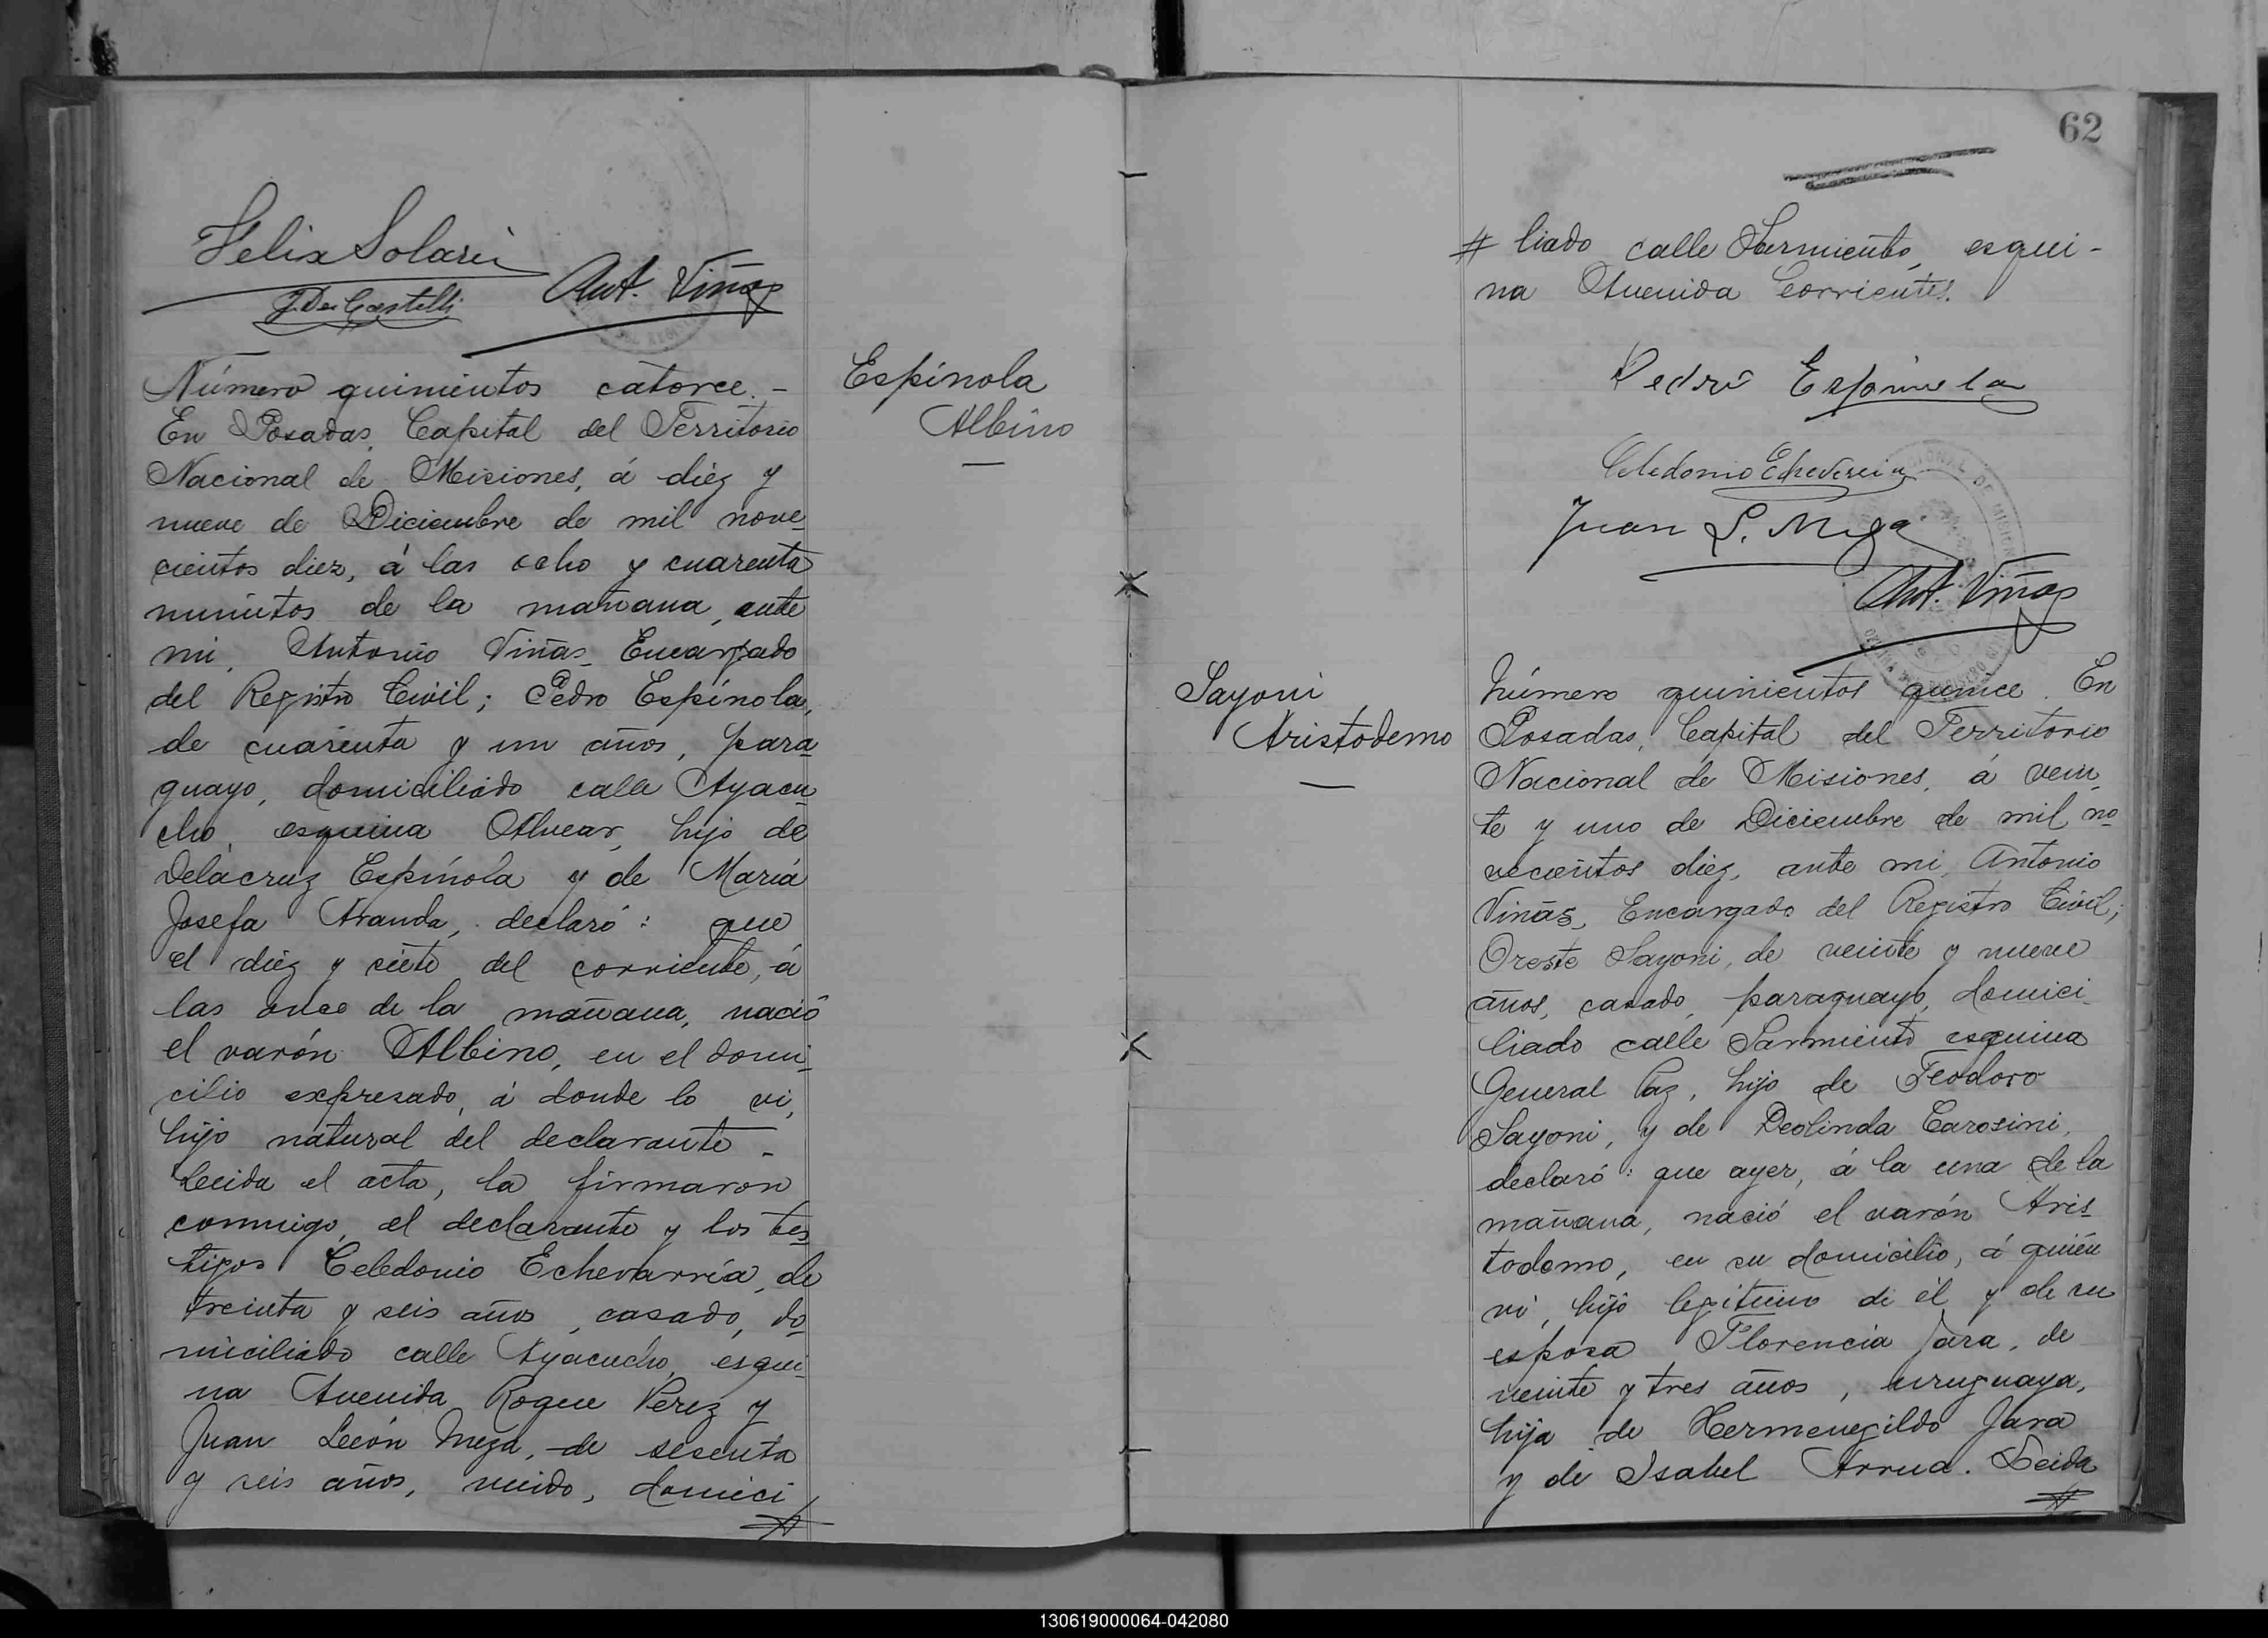 Felix Solari
J. De Castelli
Ant. Viñas
Número quinientos catorce.-
En Posadas, Capital del Territorio
Nacional de Misiones, á diéz y
nueve de Diciembre de mil nove
cientos diez, á las ocho y cuarenta
minutos de la mañana, ante
mi, Antonio Viñas, Encargado
del Registro Civil; Pedro Espínola,
de cuarenta y un años, para
guayo, domiciliado calle Ayacu
cho, esquina Alvear, hijo de
Delacruz Espínola y de María
Josefa Aranda, declaró: que
el diéz y siete del corriente, á
las once de la mañana, nació
el varón Albino, en el domi
cilio expresado, á donde lo vi,
hijo natural del declarante.-
Leida el acta, la firmaron
conmigo, el declarante y los tes
tigos Celedonio Echevarría, de
treinta y seis años, casado, do
miciliado calle Ayacucho, esqui
na Avenida Roque Perez y
Juan León Meza, de sesenta
y seis años, viudo, domici
#
Espínola
Albino
62
# liado calle Sarmiento, esqui-
na Avenida Corrientes.
Pedro Espinola
Celedonio Echeverria
Juan L. Meza
Ant. Viñas
Sayoni
Aristodemo
Número quinientos quince. En
Posadas, Capital del Territorio
Nacional de Misiones, á vein
te y uno de Diciembre de mil no
vecientos diez, ante mi, Antonio
Viñas, Encargado del Registro Civil;
Oreste Sayoni, de veinte y nueve
años, casado, paraguayo, domici
liado calle Sarmiento esquina
General Paz, hijo de Teodoro
Sayoni, y de Deolinda Carosini,
declaró: que ayer, á la una de la
mañana, nació el varón Aris
todemo, en su domicilio, á quién
vi, hijo legitimo de él y de su
esposa Florencia Jara, de
veinte y tres años, uruguaya,
hija de Hermenegildo Jara
y de Isabel Arrua. Leida
#
130619000064-042080